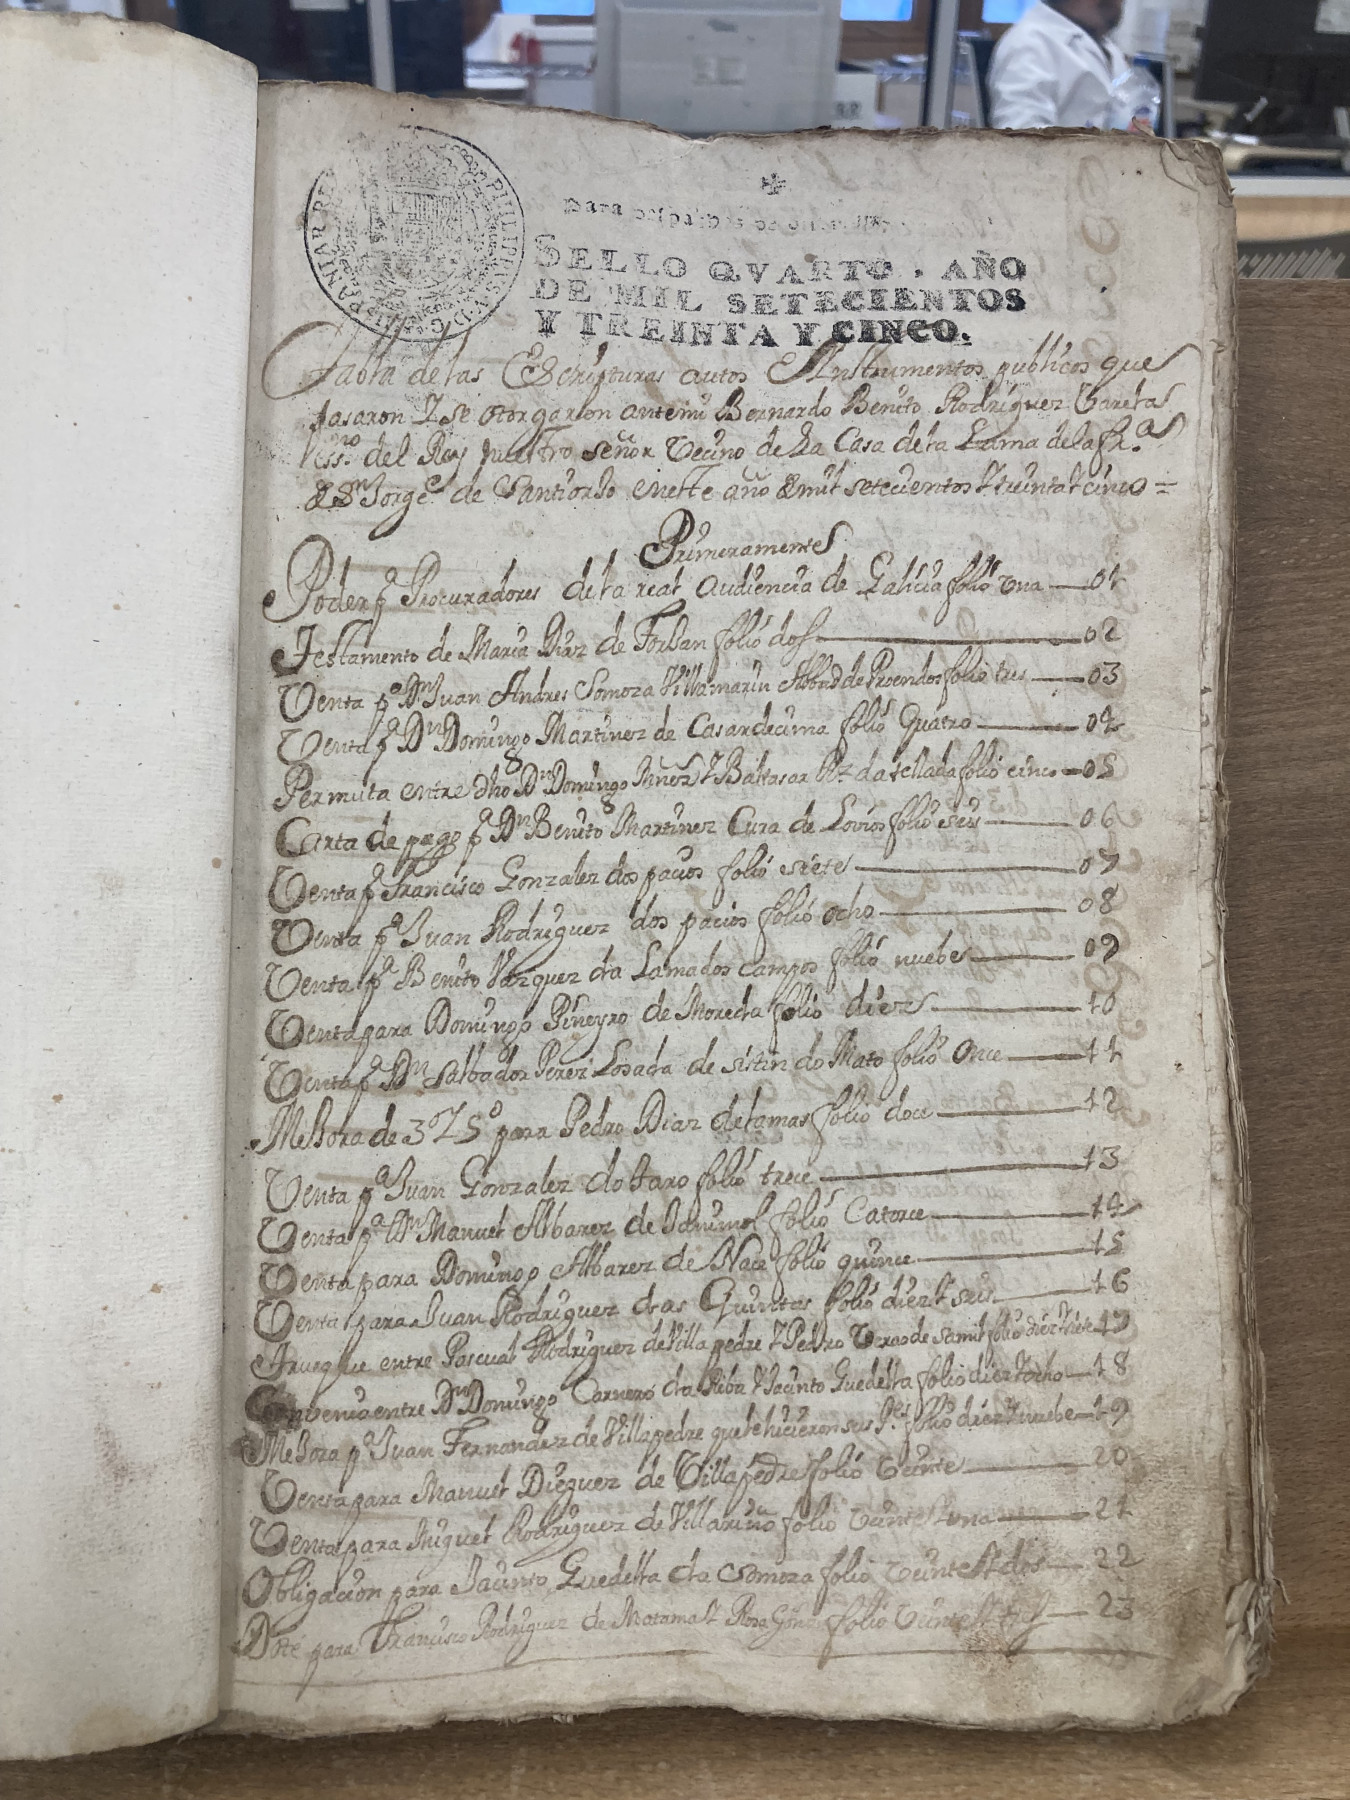 PHILIPPUS V D G HISPANIAR RE
para
SELLO QVARTO, AÑO
DE MIL SETECIENTOS
Y TREINTA Y CINCO.
Tabla de las Escripturas autos Ynstrumentos publicos que
pasaron Y se otorgaron antemi Bernardo Benito Rodriguez Varelas
ssno. del Rey nuestro señor Vecino de La Casa dela Lama dela fra.
& Sn Jorge de Santiorjo eneste año &mil setecientos Y treinta Y cinco =
Primeramente
Poder pa Procuradores dela real Audiencia de Galicia folio Una 01
Testamento de Maria Diaz de Torban folio dos 02
Venta pa Dn Juan Andres Somoza Villamarin Abbad de Proendos folio tres 03
Venta pa Dn Domingo Martinez de Casardecima folio Quatro 04
Permuta entre dho Dn Domingo Y Baltasar Rz da tellada folio cinco 05
Carta de pago pa Dn Benito Martinez Cura de Lovios folio seis 06
Venta pa Francisco Gonzalez dos pacios folio siete 07
Venta pa Juan Rodriguez dos pacios folio ocho 08
Venta pa Benito Vazquez da Lama dos campos folio nuebe 09
Venta para Domingo Piñeyro de Moreda folio diez 10
Venta pa Dn Salbador Perez Losada de sistin do Mato folio Once 11
Mellora de 3 Y 5o para Pedro Diaz delamas folio doce 12
Venta pa Juan Gonzalez do faro folio trece 13
Venta pa Dn Manuel Albarez de folio Catorce 14
Venta para Domingo Albarez de Nace folio quince 15
Venta para Juan Rodriguez das Quintas folio diez Y seis 16
Trueque entre Pascual Rodriguez de Villapedre Y Pedro de folio diez Y siete 17
Convenio entre Dn Domingo Carnero da Riba Y Jacinto Guedella folio diez Y ocho 18
Mellora pa Juan Fernandez de Villapedre que le hicieron sus Pes folio diez Y nuebe 19
Venta para Manuel Dieguez de Villapedre folio Veinte 20
Venta para Miguel Rodriguez de Villariño folio Veinte Y una 21
Obligacion para Jacinto Guedella da Somoza folio Veinte Y dos 22
Dote para Francisco Rodriguez de Matama Y Rosa folio Veinte Y tres 23